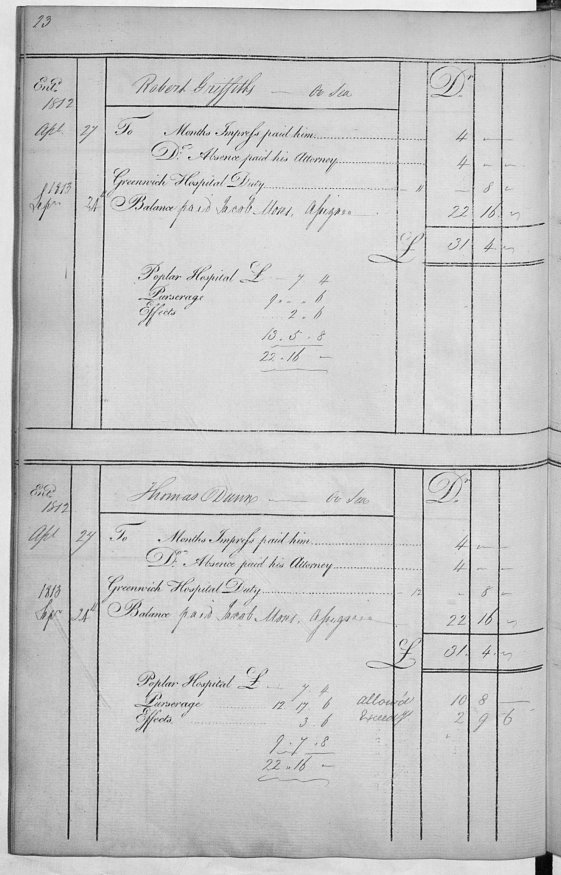 23
Entd.
1812
Robert Griffeths — Or Sea
Dr.
Apl. 27 To Months Impress paid him 4 — —
Do. Absence paid his Attorney 4 — —
Greenwich Hospital Duty " — 8 "
1813
Sepr 24th Balance paid Jacob Mons. Assignee 22 16 "
£ 31 4 "
Poplar Hospital £ — 7 4
Purserage 9 " " 6
Effects — 2 . 6
13 . 5 . 8
22 . 16 —
Entd.
1812
Thomas Dunn — Or Sea
Dr.
Apl 27 To Months Impress paid him 4 — —
Do. Absence paid his Attorney 4 — —
Greenwich Hospital Duty — 8 "
1813
Sepr 24th Balance paid Jacob Mons. Assignee 22 16 "
£ 31 . 4 . "
Poplar Hospital £ — 7 4
Purserage 12 17 6 Allow'd 10 8 —
Effects 3 . 6 Exceeds 2 9 6
9 . 7 . 8
22 . 16 "